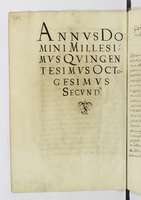 ANNVS DO
MINI MILLESI-
MVS QVINGEN
TESIMVS OCTO-
GESIMVS
SECVND⁹